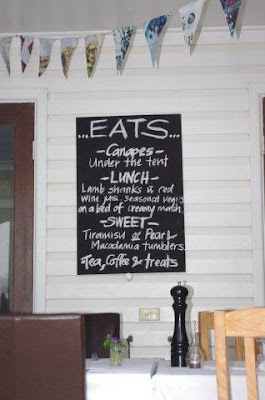 ...EATS...
-Canapes-
Under the tent
-LUNCH-
Lamb shanks in red
wine jus, seasonal veges
on a bed of creamy mash.
-SWEET-
Tiramisu or Pearl
Macadamia tumblers.
Tea, Coffee & treats